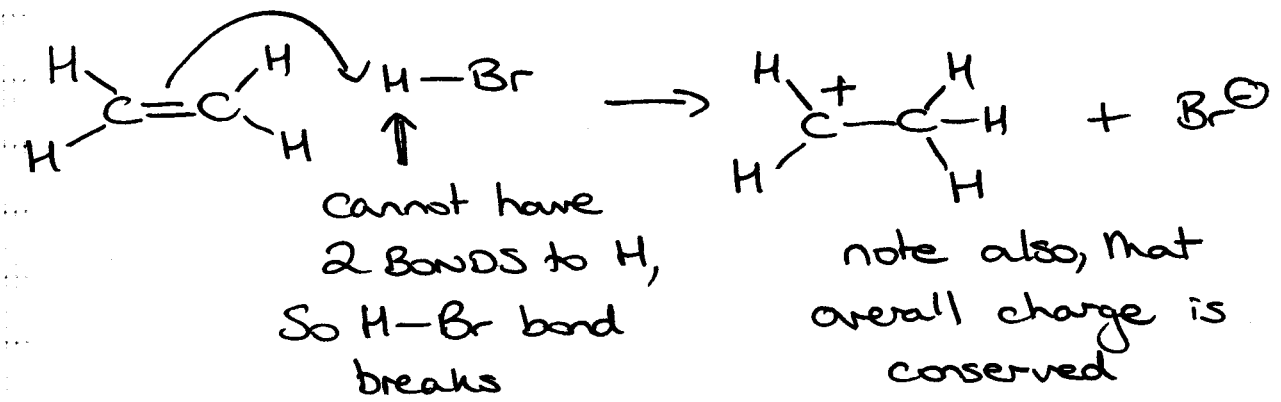 H H H—Br ⟶ H + H + Br⊖
C=C C—C—H
H H H H
cannot have
2 BONDS to H,
So H—Br bond
breaks
note also, that
overall charge is
conserved